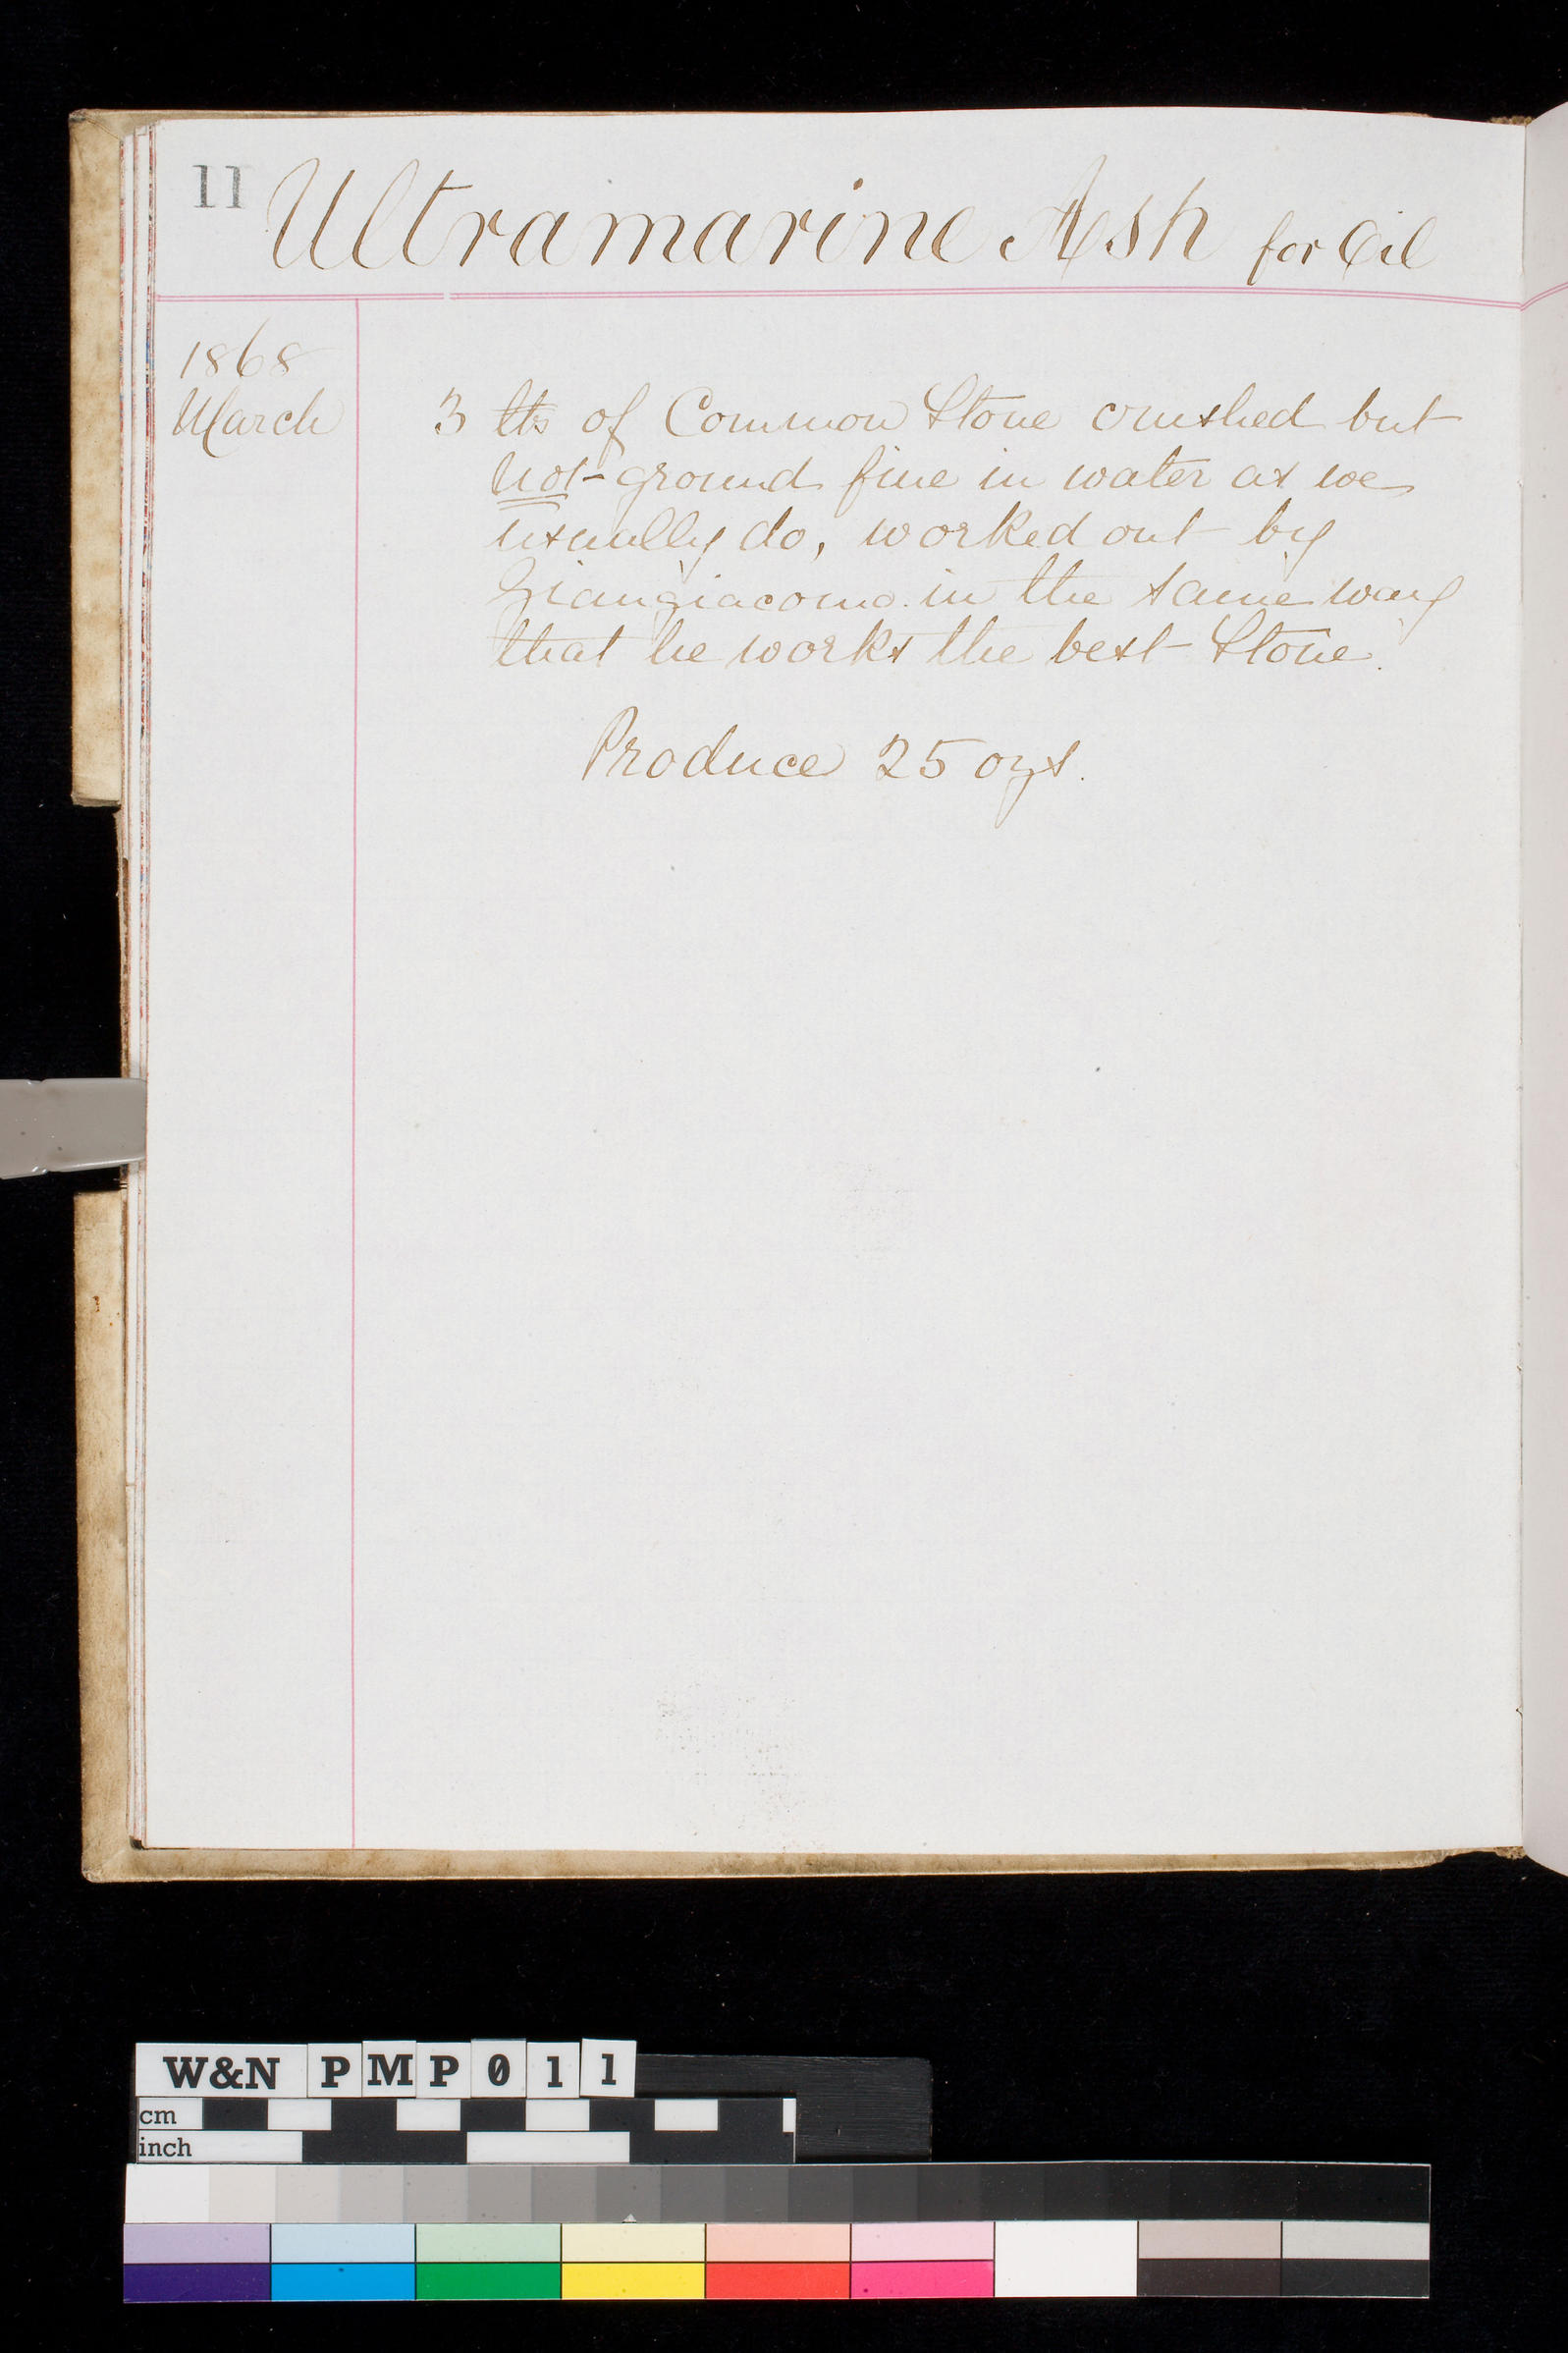 11
Ultramarine Ash for Oil
1868
March
3 lbs of Common Stone crushed but
not ground fine in water as we
usually do, worked out by
Giangiacomo in the same way
that he works the best Stone.
Produce 25 ozs.
W&N PMP011
cm
inch